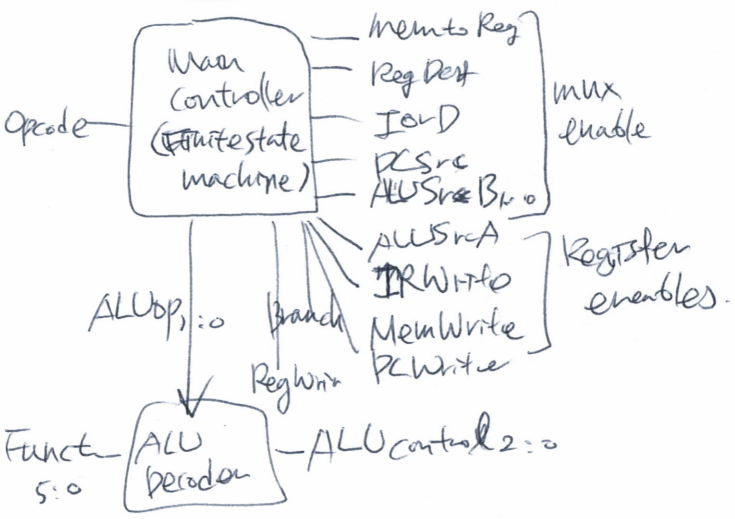 MemtoReg
Main
Controller
(Finite state
machine)
Opcode
RegDest
IorD
PCSrc
ALUSrcB1:0
mux
enable
ALUSrcA
IRWrite
MemWrite
PCWrite
Register
enables.
ALUOp1:0
Branch
RegWrite
Funct
5:0
ALU
Decoder
ALUcontrol2:0